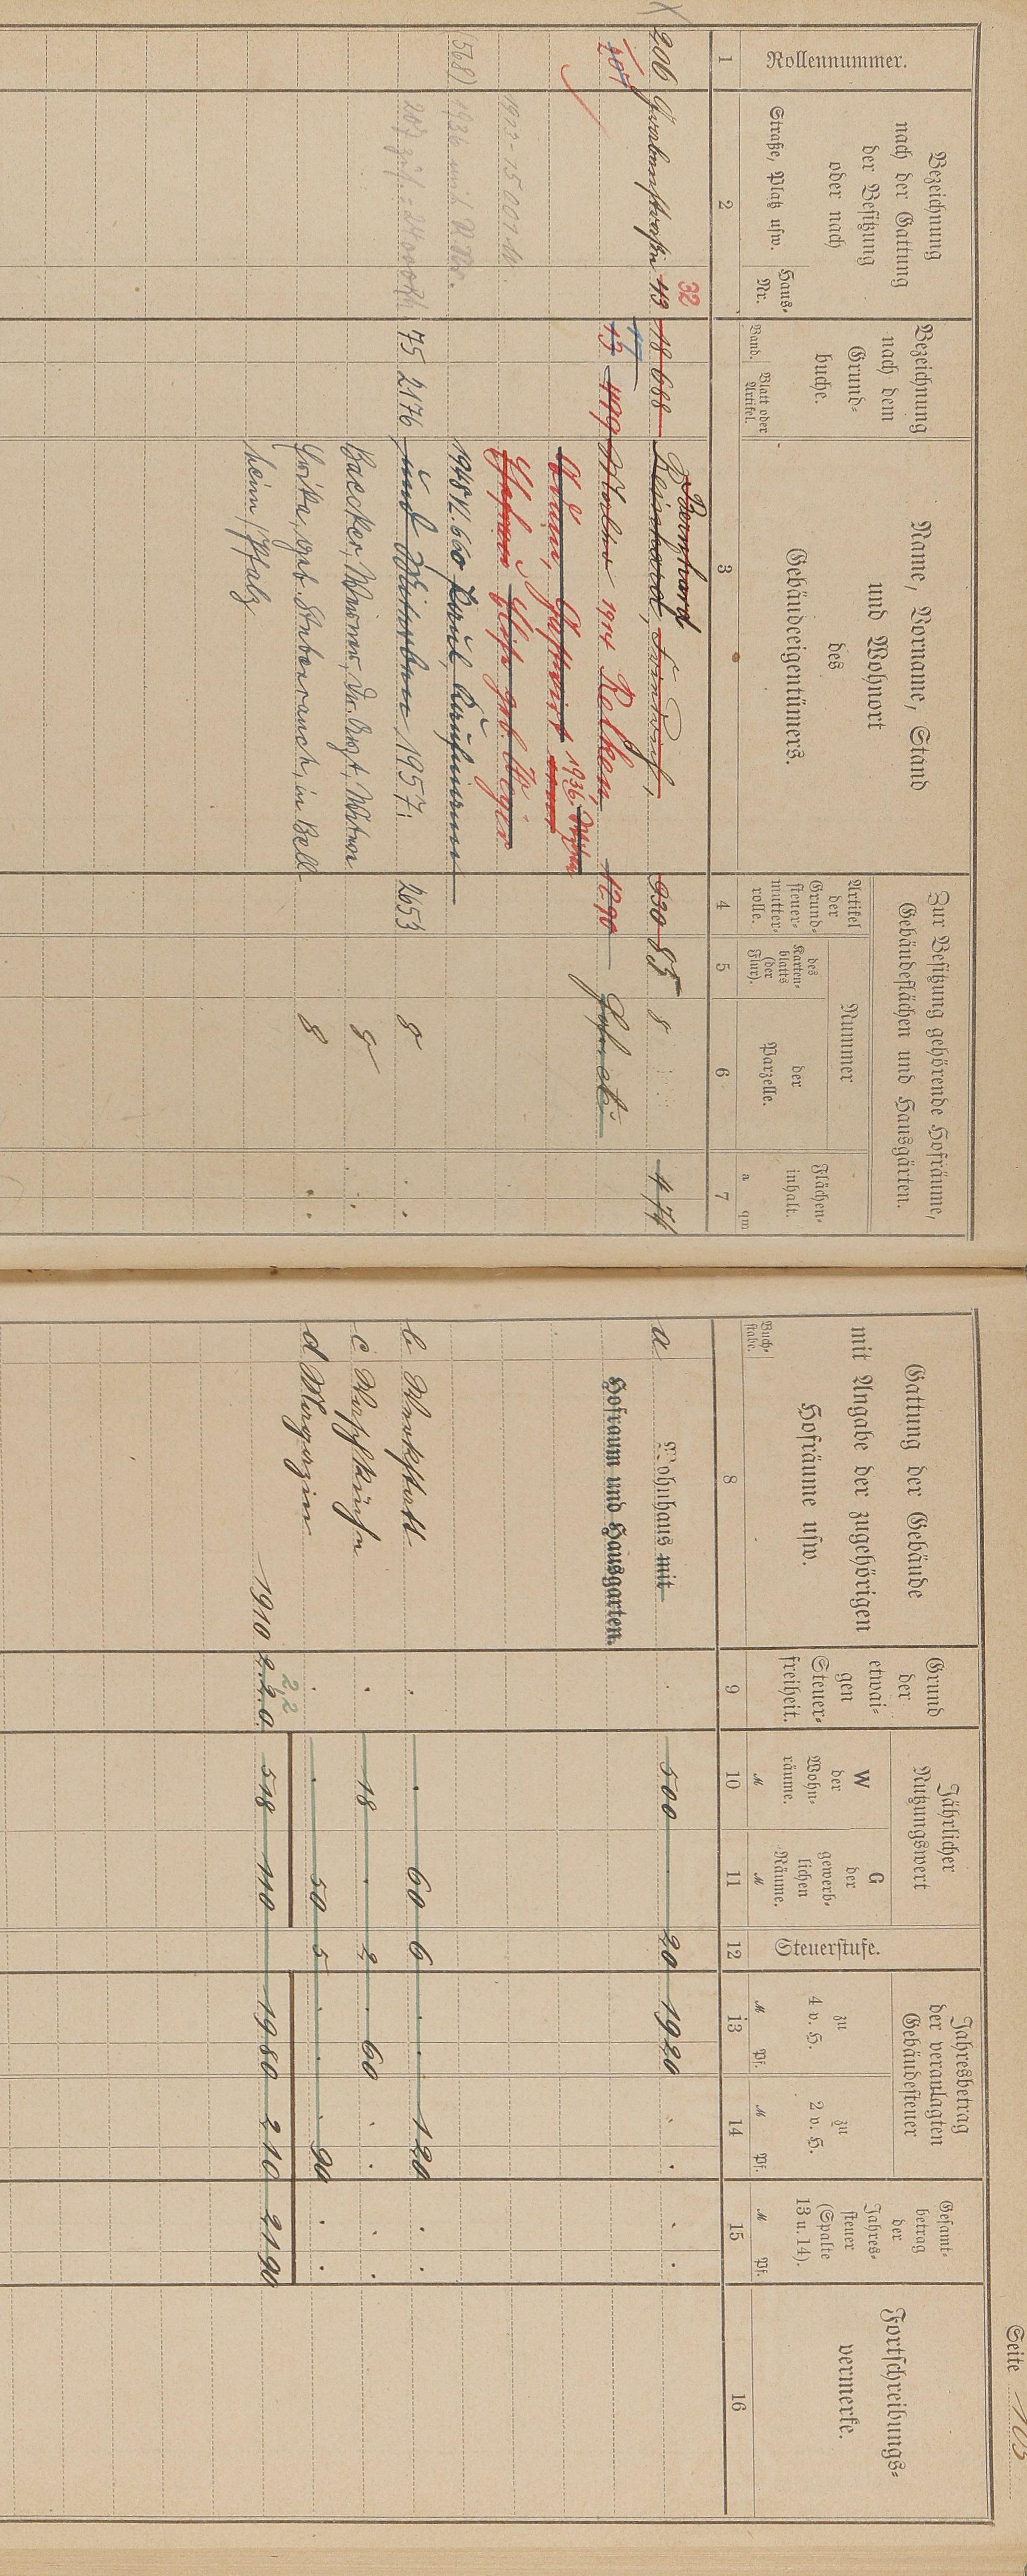 Seite 103
Rollennummer.
Bezeichnung
nach der Gattung
der Besitzung
oder nach
Straße, Platz usw.
Haus-
Nr.
Bezeichnung
nach dem
Grund-
buche.
Band.
Blatt oder
Artikel.
Name, Vorname, Stand
und Wohnort
des
Gebäudeeigentümers.
Zur Besitzung gehörende Hofräume,
Gebäudeflächen und Hausgärten.
Artikel
der
Grund-
steuer-
mutter-
rolle.
Nummer
des
Karten-
blatts
(der
Flur).
der
Parzelle.
Flächen-
inhalt.
a qm
1 2 3 4 5 6 7
32
Bernhard
206 43 18 688 Reinhard, 930 85 8 4 74
207 17
13 499 1914 Relken, 1290
1936
1913 - 15 001 M
geb.
(568) 1936 1948 V. 660 Paul, Kaufmann
75 2176 und 1957: 2653 8
Baecker, Werner, Dr. Arzt, 8
geb. in Bell- 8
heim/Pfalz
Gattung der Gebäude
mit Angabe der zugehörigen
Hofräume usw.
Buch-
stabe.
Grund
der
etwai-
gen
Steuer-
freiheit.
Jährlicher
Nutzungswert
W
der
Wohn-
räume.
M
G
der
gewerb-
lichen
Räume.
M
Steuerstufe.
Jahresbetrag
der veranlagten
Gebäudesteuer
zu
4 v. H.
M Pf.
zu
2 v. H.
M Pf.
Gesamt-
betrag
der
Jahres-
steuer
(Spalte
13 u. 14).
M Pf.
Fortschreibungs-
vermerke.
8 9 10 11 12 13 14 15 16
a Wohnhaus mit 500 . 20 19 20 . .
Hofraum und Hausgarten.
b Werkstatt . . 60 6 . . 1 20 . .
c Waschküche . 18 . 2 . 60 . . . .
d Magazin . . 50 5 . . . 90 . .
2,2
1910 2.2.0. 518 110 19 80 2 10 21 90